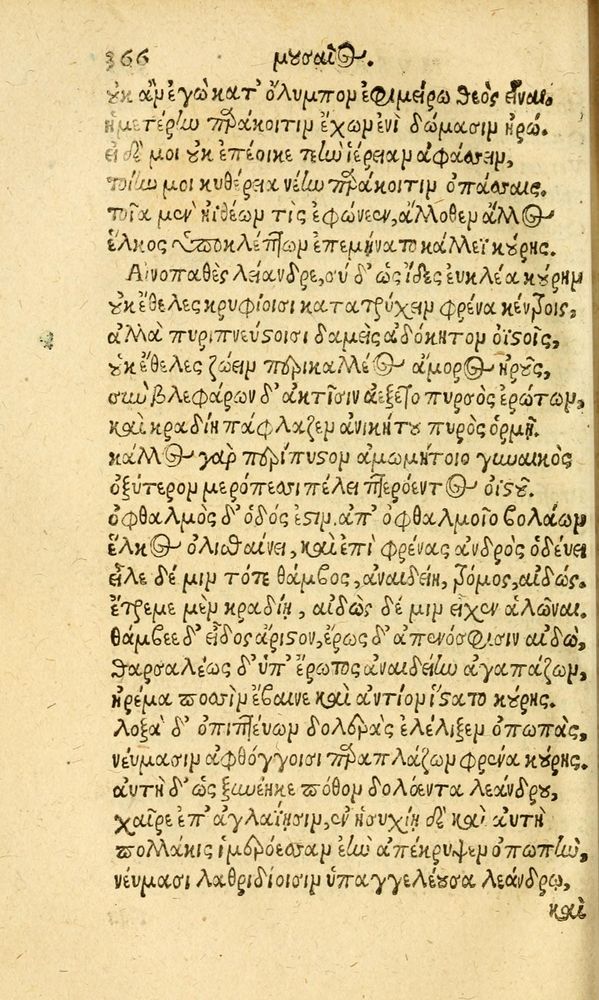 366 μουσαῖος.
οὐκ ἂν ἐγὼ κατ' ὄλυμπον ἐφιμείρω θεὸς εἶναι.
ἡμετέρην παράκοιτιν ἔχων ἐνὶ δώμασιν ἡρώ.
εἰ δέ μοι οὐκ ἐπέοικε τεὴν ἱέρειαν ἀφάσσειν,
τοίην μοι κυθέρεια νέην παράκοιτιν ὀπάσσαις.
τοῖα μὲν ἠϊθέων τὶς ἐφώνεεν, ἄλλοθεν ἄλλος
ἕλκος ὑποκλέπτων ἐπεμήνατο κάλλεϊ κούρης.
Αἰνοπαθὲς λείανδρε, σύ δ' ὡς ἴδες εὐκλέα κούρην
οὐκ ἔθελες κρυφίοισι κατατρύχειν φρένα κέντροις,
ἀλλὰ πυριπνεύστοισι δαμεὶς ἀδόκητον ὀϊστοῖς,
οὐκ ἔθελες ζώειν περικαλλέος ἄμορος ἡροῦς,
σὺν βλεφάρων δ' ἀκτῖσιν ἀέξετο πυρσὸς ἐρώτων,
καὶ κραδίη πάφλαζεν ἀνικήτου πυρὸς ὁρμῇ.
κάλλος γὰρ περίπυστον ἀμωμήτοιο γυναικὸς
ὀξύτερον μερόπεσσι πέλει πτερόεντος ὀϊστοῦ.
ὀφθαλμὸς δ' ὁδός ἐστιν. ἀπ' ὀφθαλμοῖο βολάων
ἕλκος ὀλισθαίνει, καὶ ἐπὶ φρένας ἀνδρὸς ὁδεύει
εἷλε δέ μιν τότε θάμβος, ἀναιδείη, τρόμος, αἰδώς.
ἔτρεμε μὲν κραδίη, αἰδὼς δέ μιν εἶχεν ἁλῶναι.
θάμβεε δ' εἶδος ἄριστον, ἔρως δ' ἀπενόσφισεν αἰδῶ,
θαρσαλέως δ' ὑπ' ἔρωτος ἀναιδείην ἀγαπάζων,
ἠρέμα ποσσὶν ἔβαινε καὶ ἀντίον ἵστατο κούρης.
λοξὰ δ' ὀπιπτεύων δολερὰς ἐλέλιξεν ὀπωπὰς,
νεύμασιν ἀφθόγγοισι παραπλάζων φρένα κούρης.
αὐτὴ δ' ὡς ξυνέηκε πόθον δολόεντα λεάνδρου,
χαῖρε ἐπ' ἀγλαΐῃσιν, ἐν ἡσυχίῃ δὲ καὶ αὐτὴ
πολλάκις ἱμερόεσσαν ἑὴν ἀπέκρυψεν ὀπωπὴν,
νεύμασι λαθριδίοισιν ὑπαγγελέουσα λεάνδρῳ,
καὶ